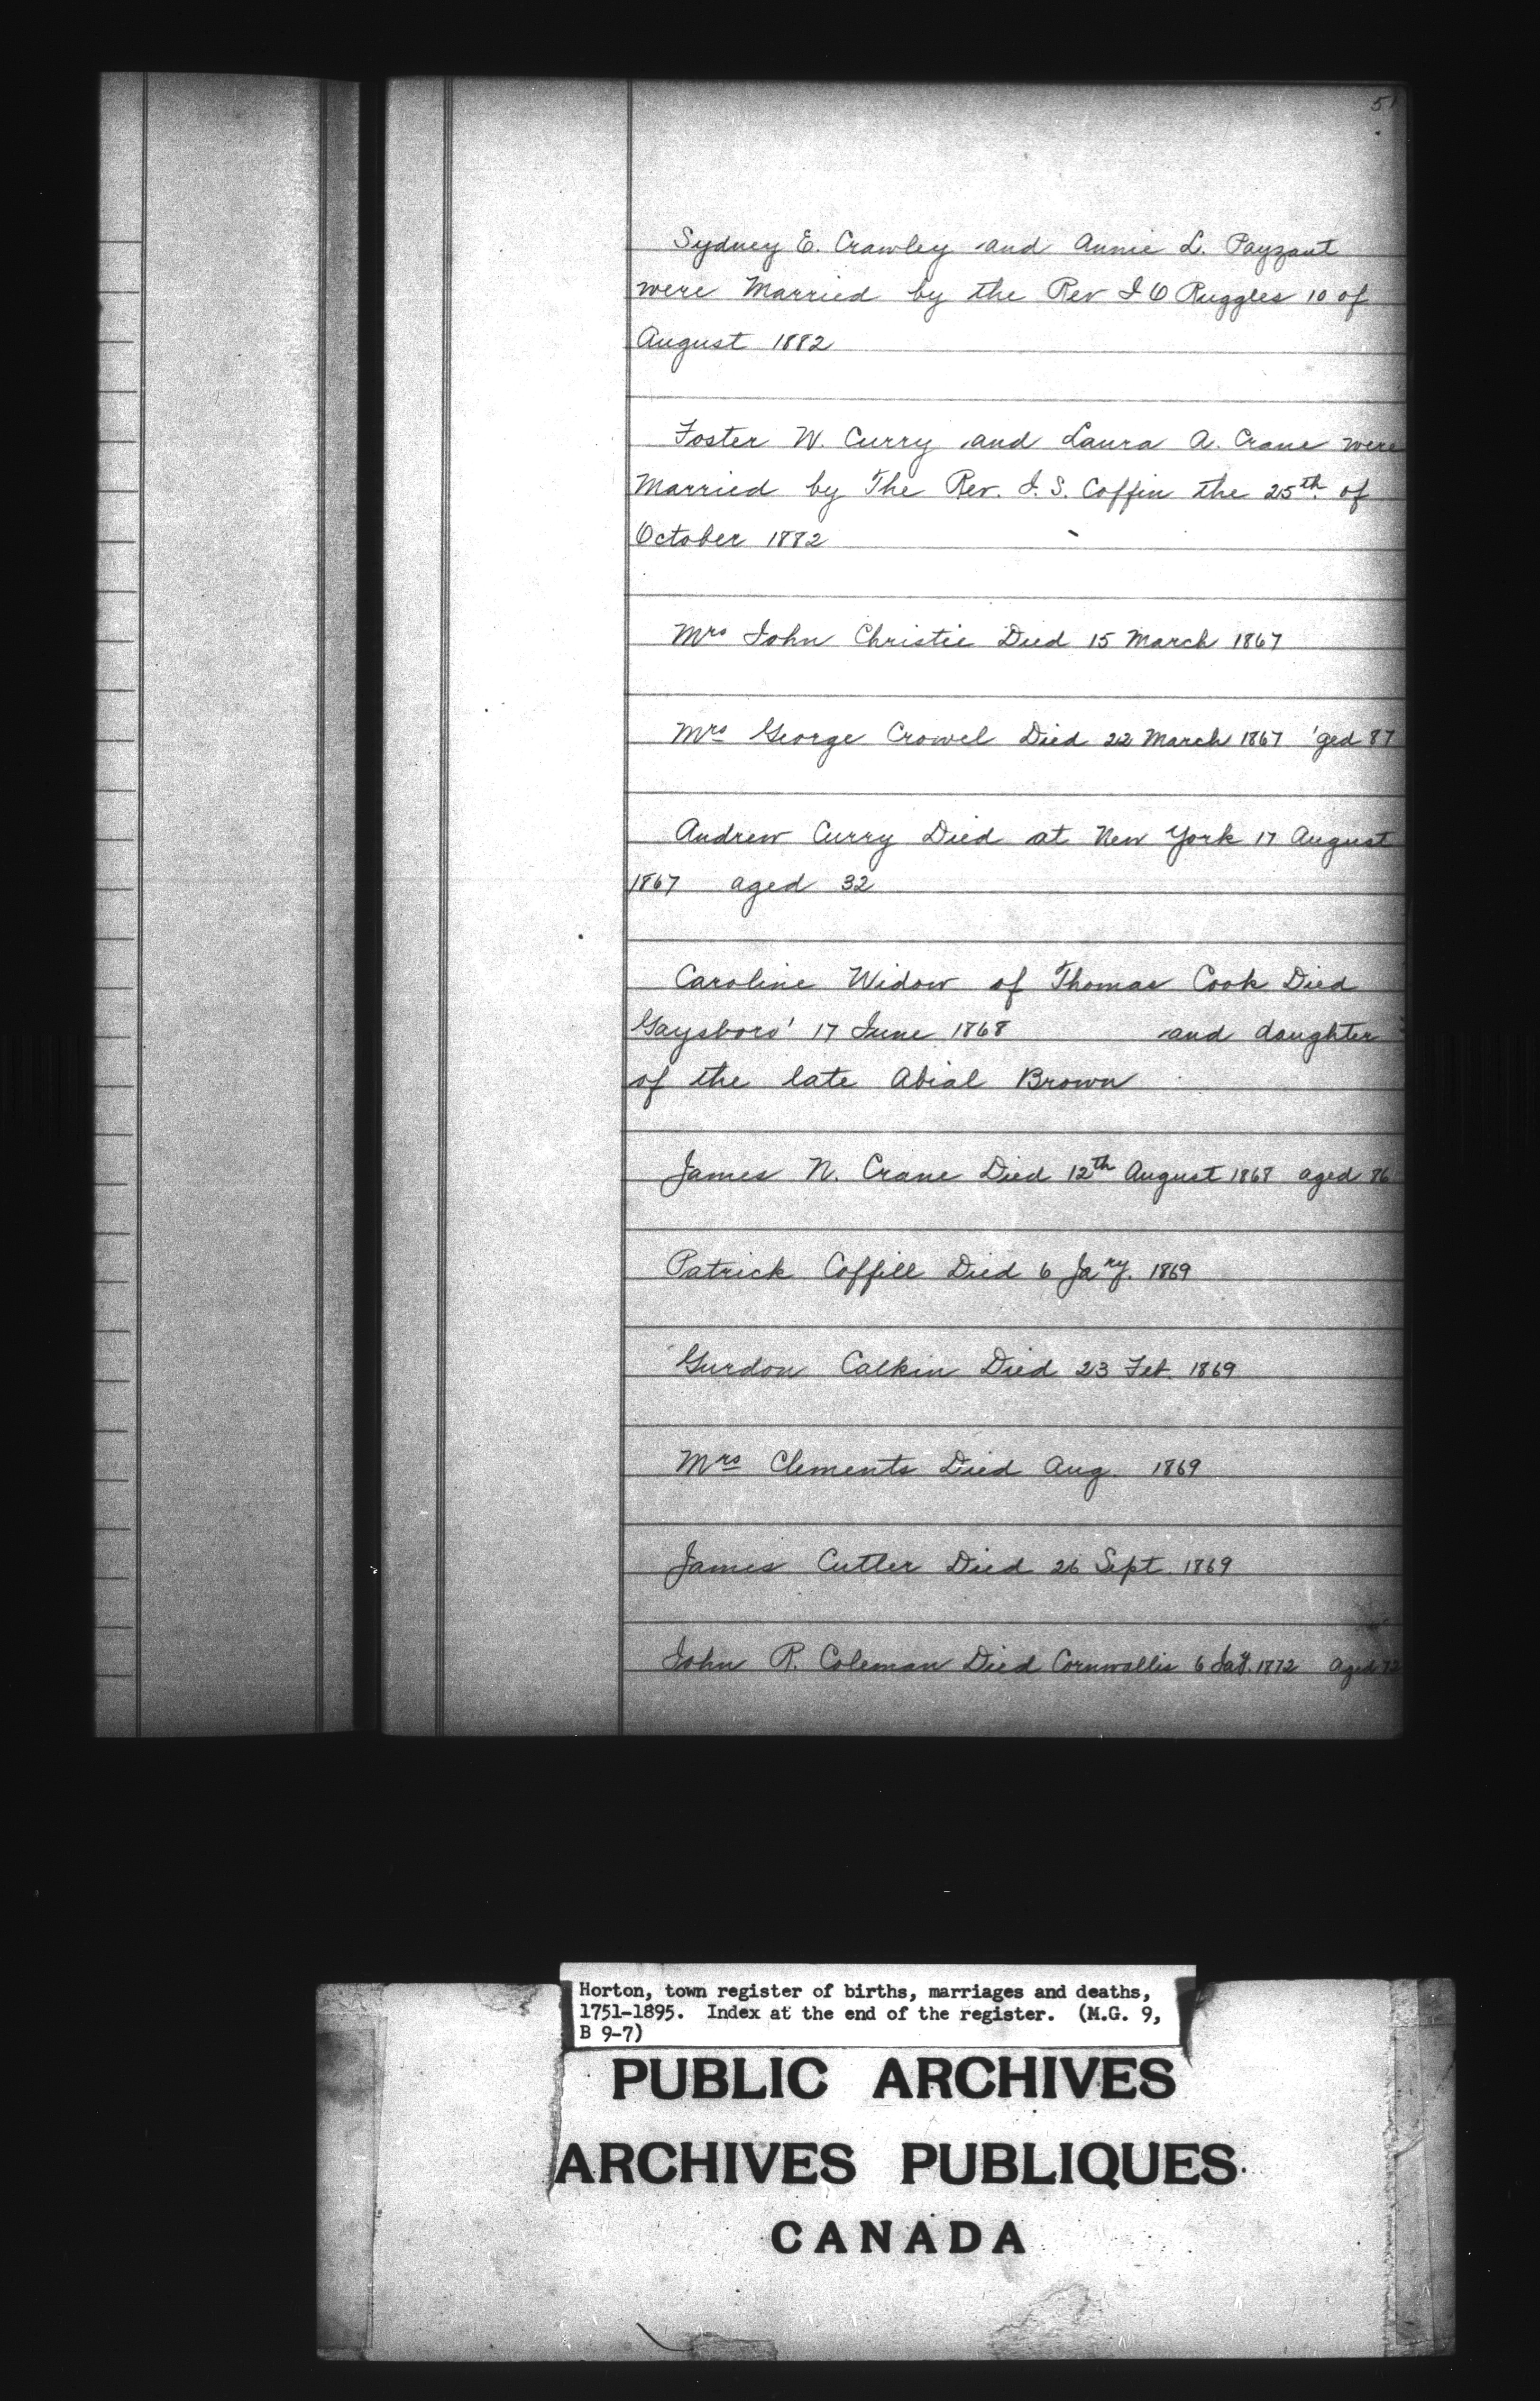 51
Sydney E. Crawley and Annie L. Payzant
were Married by the Rev J O Ruggles 10 of
August 1882
Foster W. Curry and Laura A. Crane were
Married by The Rev. J. S. Coffin the 25th of
October 1882
Mrs John Christie Died 15 March 1867
Mrs George Crowel Died 22 March 1867 'ged 87
Andrew Curry Died at New York 17 August
1867 aged 32
Caroline Widow of Thomas Cook Died
Gaysboro' 17 June 1868 and daughter
of the late Abial Brown
James N. Crane Died 12th August 1868 aged 86
Patrick Coffill Died 6 Jary. 1869
Gurdon Calkin Died 23 Feb. 1869
Mrs Clements Died Aug. 1869
James Cutler Died 26 Sept. 1869
John R. Coleman Died Cornwallis 6 1872 Aged 72
Horton, town register of births, marriages and deaths,
1751-1895. Index at the end of the register. (M.G. 9,
B 9-7)
PUBLIC ARCHIVES
ARCHIVES PUBLIQUES
CANADA